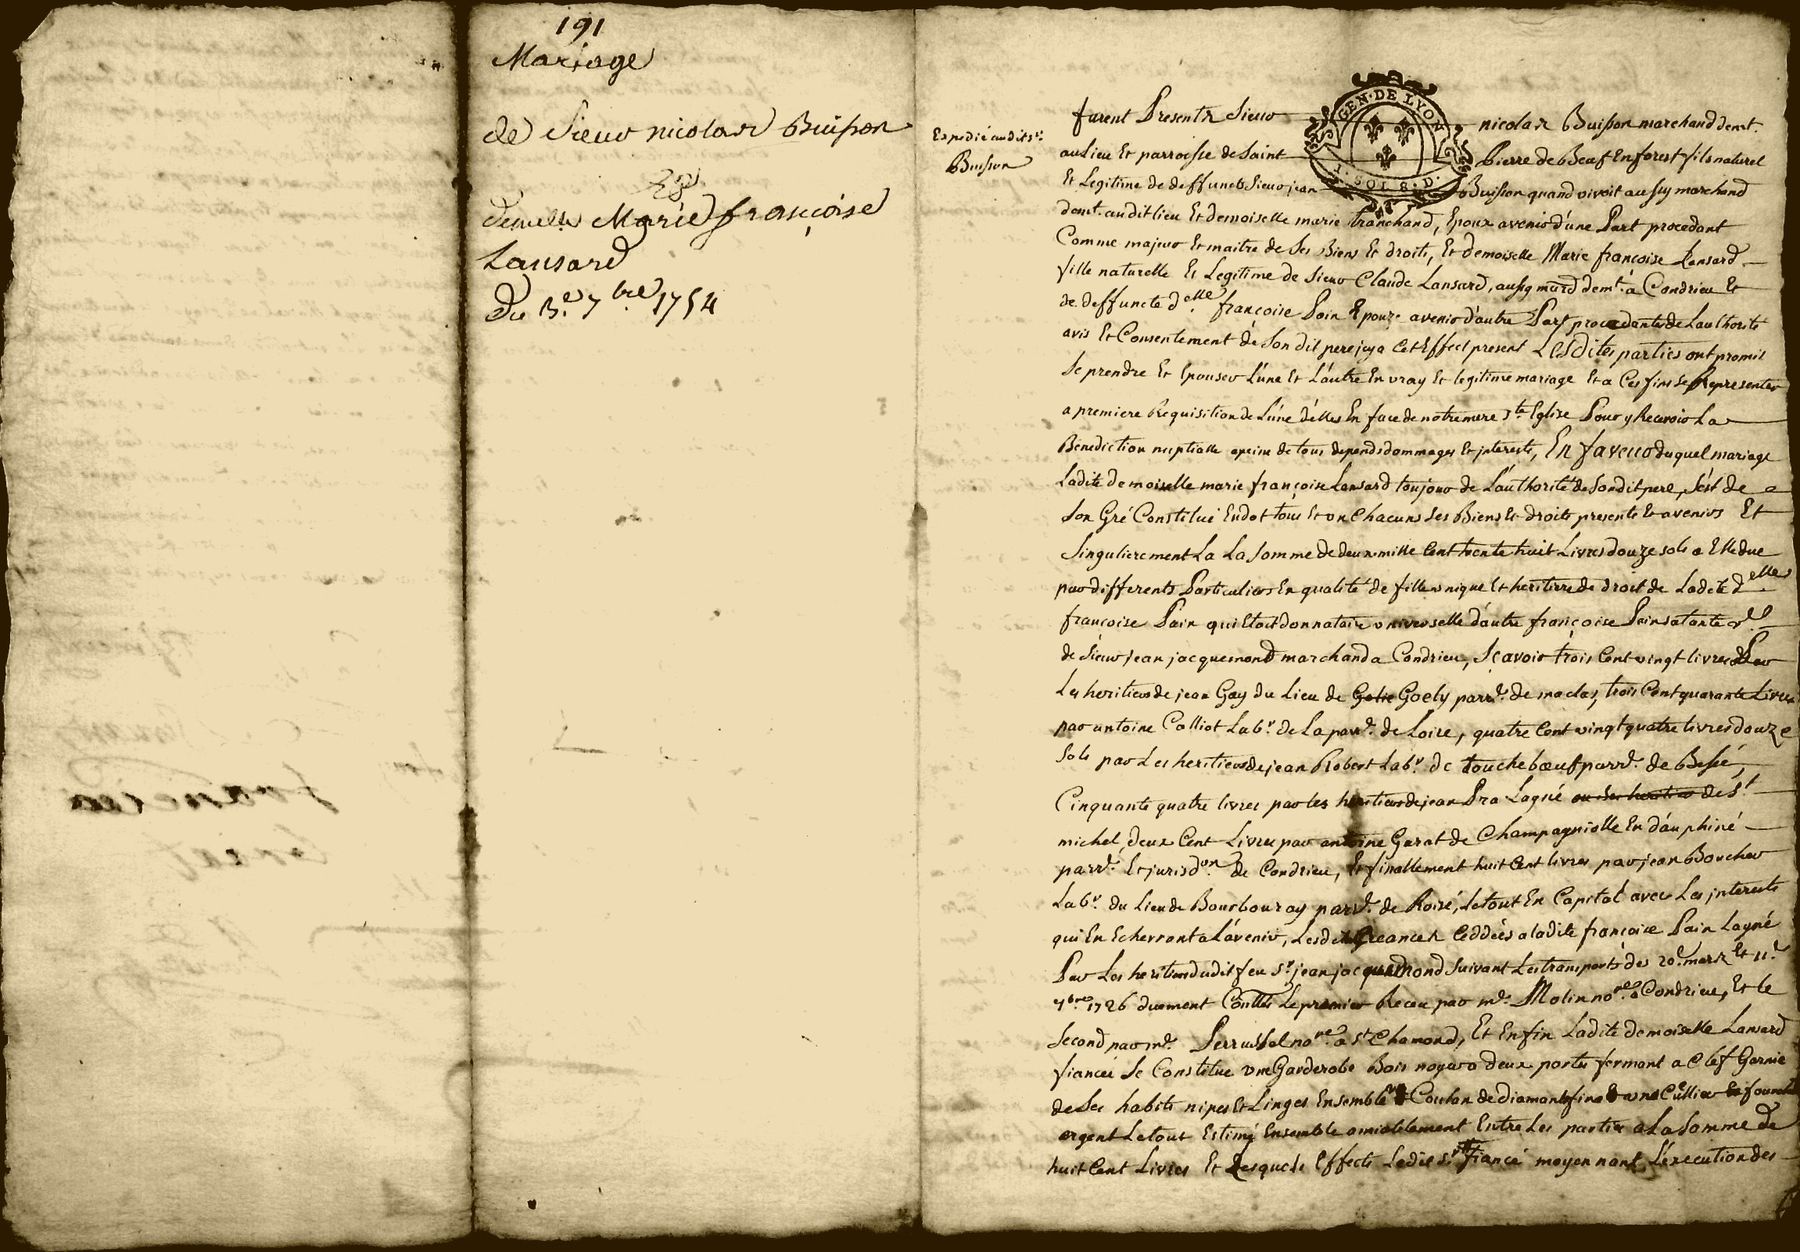 191
Mariage
de Sieur nicolas Buisson
&
demelle Marie françoise
Lansard
Du 3.e 7bre 1754
Expedié audit sr.
Buisson
GEN·DE LYON
I·SOL 8·D·
furent Presents Sieur nicolas Buisson marchand demt.
au Lieu Et parroisse de Saint Pierre de Bœuf En forest fils naturel
Et Legitime de deffunct Sieur jean Buisson quand vivoit aussy marchand
demt. audit lieu Et demoiselle marie tranchand, Epoux avenir d'une Part procedant
Comme majeur Et maitre de Ses Biens Et droits, Et demoiselle Marie françoise Lansard
fille naturelle Et Legitime de Sieur Claude Lansard, aussy mard demt. a Condrieu Et
de deffuncte delle. françoise Pain Epouze avenir d'autre Part procedante de Lauthorité
avis Et Consentement de Son dit pere icy a Cet Effect present Lesdites parties ont promis
Se prendre Et Epouser L'une Et L'autre En vray Et legitime mariage Et a Ces fins Se Representer
a premiere Requisition de L'une d'elles En face de notre mere Ste Eglise Pour y Recevoir La
Bénédiction nuptialle a peine de tous depends dommages Et interests, En faveur duquel mariage
Ladite demoiselle marie françoise Lansard toujour de L'authorité de Son dit pere, S'est de
Son Gré Constitué En dot tous Et un Chacuns Ses Biens Et droits presents Et avenirs Et
Singulierement La La Somme de deux mille Cent trente huit Livres douze sols a Elle due
par differents Particuliers En qualité de fille unique Et heritiere de droit de Ladite delle
françoise Pain qui Etoit donnataire universelle d'autre françoise Pain sa tante
de Sieur jean jacquemond marchand a Condrieu, Sçavoir trois Cent vingt livres Par
Les heritiers de jean Gay du Lieu de Goely parre. de maclas, trois Cent quarante Livres
par antoine Colliot Labr. de La parre. de Loire, quatre Cent vingt quatre livres douze
Sols par Les heritiers de jean Robert Labr. de touchebœuf parre. de Bessé,
Cinquante quatre livres par les heritiers de jean Pra Lagné ou des heritiers de St
michel, deux Cent Livres par antoine Garat de Champagniolle En dauphiné
parre. Et jurisdon. de Condrieu, Et finallement huit Cent livres par jean Boucher
Labr. du Lieu de Bourbouray parre. de Roisé, Le tout En Capital avec Les interests
qui En Echerront a L'avenir, Lesdites Creances Ceddées a ladite françoise Pain Lagné
Par Les heritiers dudit feu Sr. jean jacquemond Suivant Les transports des 20e. mars Et 11e.
7bre 1726 duement Conllés Le premier Receu par me. Molin nore. a Condrieu, Et le
Second par me. nore. a St Chamond, Et Enfin Ladite demoiselle Lansard
fiancée Se Constitue une Garderobe Bois noyer a deux portes fermant a Clef Garnie
de Ses habits nipes Et Linges Ensemble Coulan de diamants fins Cullier Et fourchette
argent Le tout Estimé Ensemble amiablement Entre Les parties a La Somme de
huit Cent Livres Et Lesquels Effects Ledit Sr. fiancé moyennant L'execution des